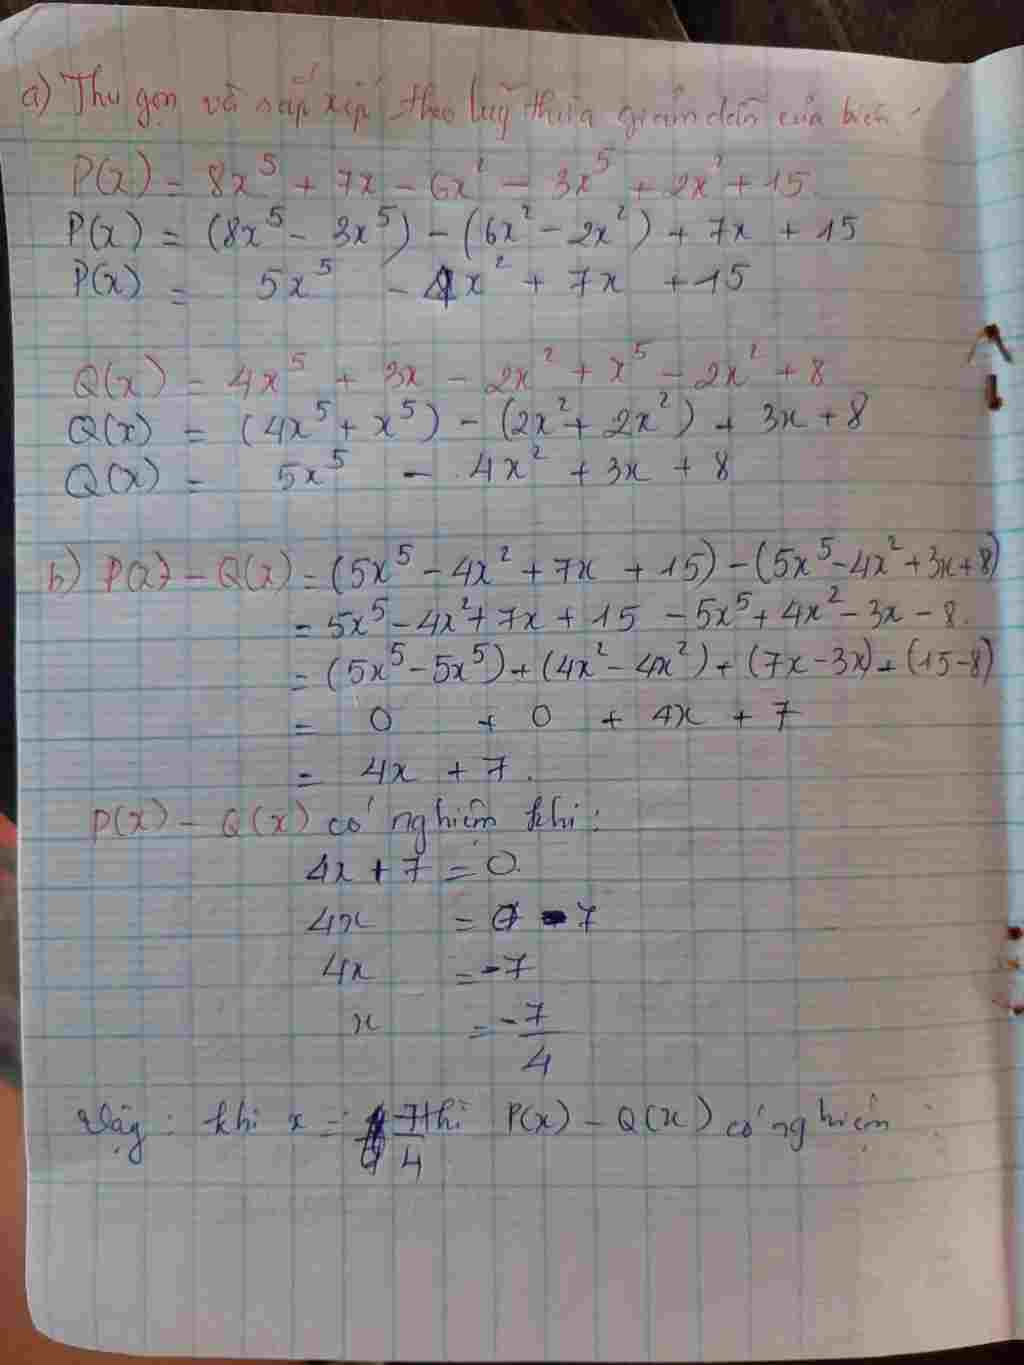 a) Thu gọn và sắp xếp theo luỹ thừa giảm dần của biến.
P(x) = 8x⁵ + 7x - 6x² - 3x⁵ + 2x² + 15.
P(x) = (8x⁵ - 3x⁵) - (6x² - 2x²) + 7x + 15
P(x) = 5x⁵ - 4x² + 7x + 15
Q(x) = 4x⁵ + 3x - 2x² + x⁵ - 2x² + 8
Q(x) = (4x⁵ + x⁵) - (2x² + 2x²) + 3x + 8
Q(x) = 5x⁵ - 4x² + 3x + 8
b) P(x) - Q(x) = (5x⁵ - 4x² + 7x + 15) - (5x⁵ - 4x² + 3x + 8)
= 5x⁵ - 4x² + 7x + 15 - 5x⁵ + 4x² - 3x - 8.
= (5x⁵ - 5x⁵) + (4x² - 4x²) + (7x - 3x) + (15 - 8)
= 0 + 0 + 4x + 7
= 4x + 7.
P(x) - Q(x) có nghiệm khi:
4x + 7 = 0.
4x = 0 - 7
4x = -7
x = -7/4
Vậy: khi x = 7/4 thì P(x) - Q(x) có nghiệm